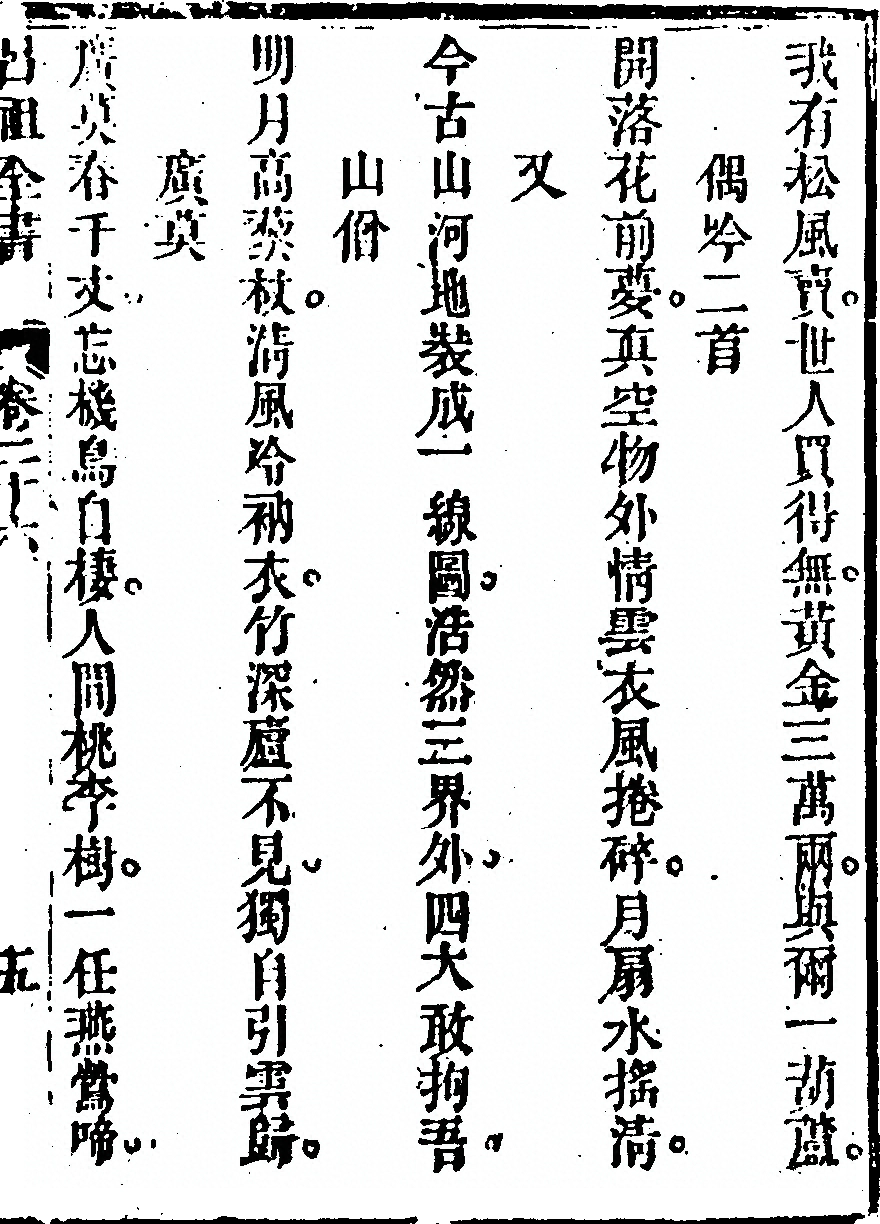 我有松風賣。世人買得無。黃金三萬兩。與爾一葫蘆。
偶吟二首
開落花前夢。真空物外情雲衣風捲碎。月扇水搖清。
又
今古山河地裝成一線圖。浩然三界外。四大敢拘吾。
山僧
明月高藜杖。清風冷衲衣。竹深廬不見。獨自引雲歸。
廣莫
廣莫春千丈。忘機鳥自棲。人間桃李樹。一任燕鶯啼。
呂祖全書 卷二十六 五